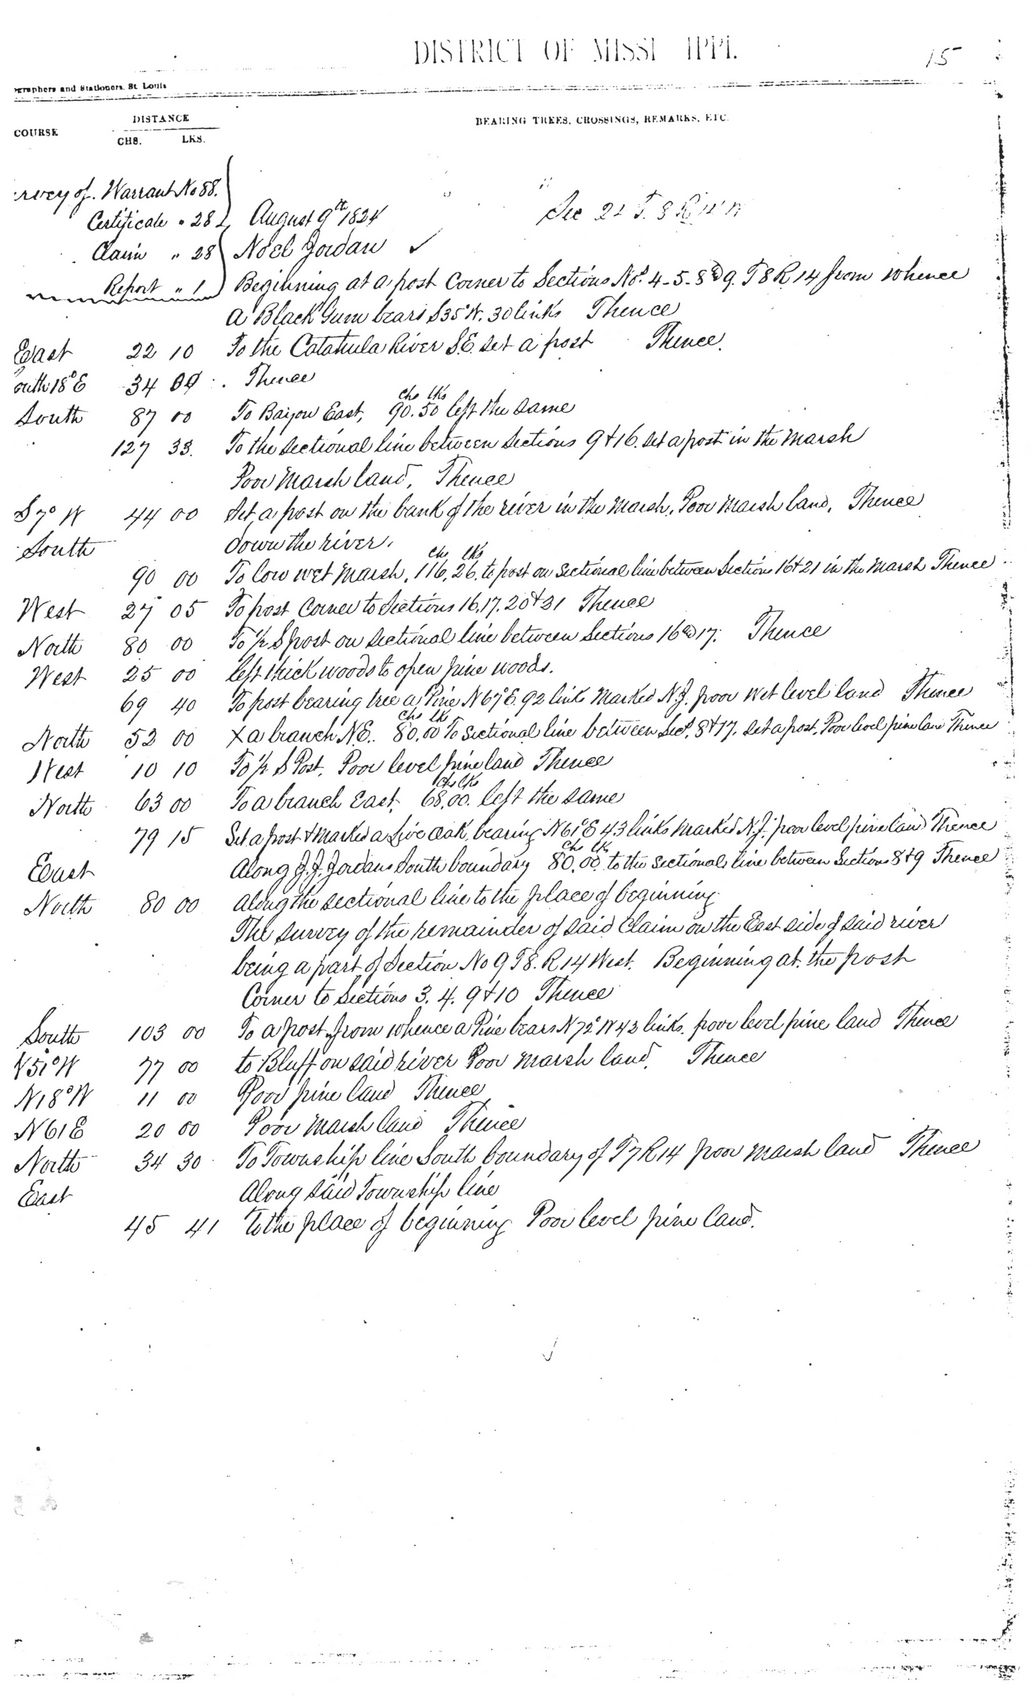 DISTRICT OF MISSI IPPI.
15
graphers and Stationers, St. Louis
COURSE DISTANCE BEARING TREES, CROSSINGS, REMARKS, ETC.
CHS. LKS.
rvey of Warrant No 88.
Certificate " 28 August 9th 1824 Sec 21 T. 8 R 14 W
Claim " 28 Noel Jordan ✓
Report " 1 Beginning at a post Corner to Sections Nos. 4-5-8 & 9. T8 R14 from whence
a Black Gum bears S35°W. 30 links Thence
East 22 10 To the Catahula River S.E. set a post Thence.
outh 18°E 34 00 Thence
South 87 00 To Bayou East, 90.50 chs lks left the same
127 33. To the sectional line between sections 9 & 16. set a post in the marsh
Poor marsh land, Thence
S 7° W 44 00 Set a post on the bank of the river in the marsh, Poor marsh land, Thence
South down the river.
90 00 To low wet marsh, 116.26 chs lks to post on sectional line between sections 16 & 21 in the marsh Thence
West 27 05 To post Corner to Sections 16.17.20 & 21 Thence
North 80 00 To 1/2 S post on sectional line between Sections 16 & 17. Thence
West 25 00 left thick woods to open pine woods.
69 40 To post bearing tree a Pine N 67°E. 92 links marked N.J. poor wet level land Thence
North 52 00 X a branch N.E. 80.00 chs lk To sectional line between Secs. 8 & 17. set a post. Poor level pine land Thence
West 10 10 To 1/2 S Post. Poor level pine land Thence
North 63 00 To a branch East. 68.00. chs lks left the same
79 15 Set a post & marked a Live Oak, bearing N 61°E 43 links marked N.J. poor level pine land Thence
East Along J.J. Jordans South boundary 80.00 ch lk to the sectional line between Sections 8 & 9 Thence
North 80 00 along the sectional line to the place of beginning
The survey of the remainder of said Claim on the East side of said river
being a part of Section No 9 T8. R14 West. Beginning at the post
Corner to Sections 3. 4. 9 & 10 Thence
South 103 00 To a post from whence a Pine bears N 72°W 43 links. poor level pine land Thence
N 51°W 77 00 to Bluff on said river Poor marsh land. Thence
N 18°W 11 00 Poor pine land Thence
N 61 E 20 00 Poor marsh land Thence
North 34 30 To Township line South boundary of T7 R14 poor marsh land Thence
East Along said Township line
45 41 to the place of beginning Poor level pine land.